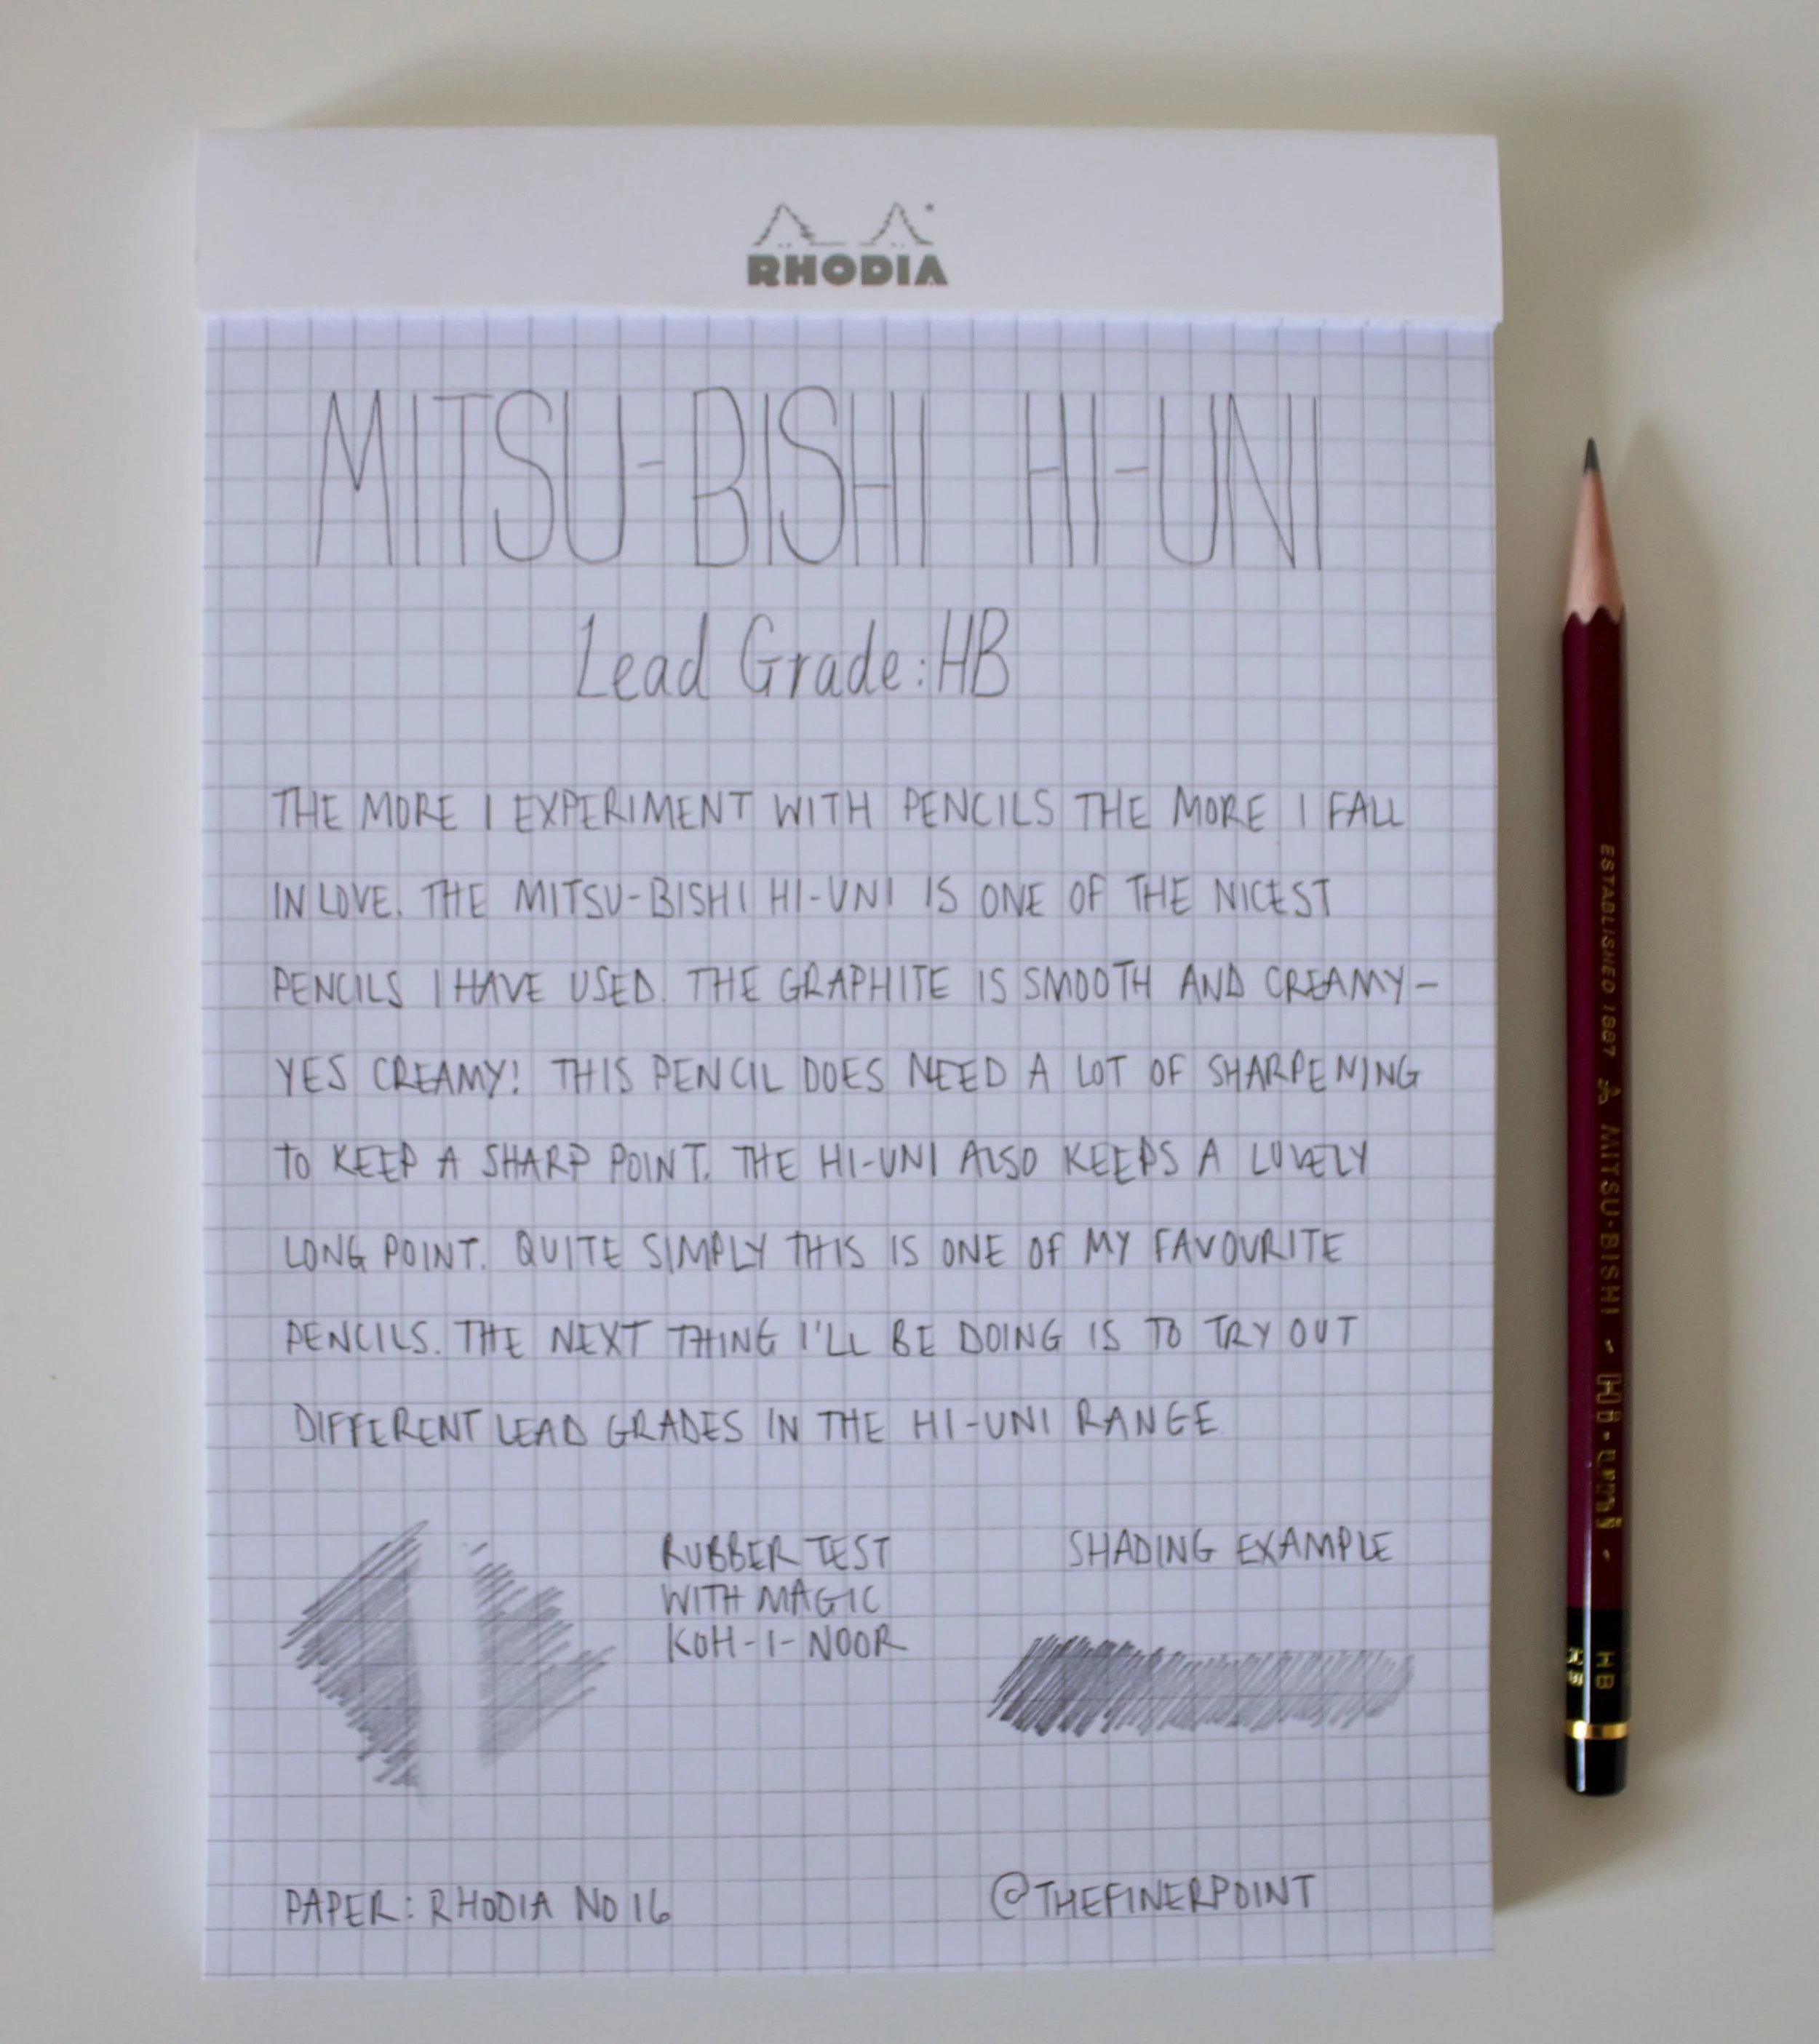 RHODIA
MITSU-BISHI HI-UNI
Lead Grade: HB
THE MORE I EXPERIMENT WITH PENCILS THE MORE I FALL
IN LOVE. THE MITSU-BISHI HI-UNI IS ONE OF THE NICEST
PENCILS I HAVE USED. THE GRAPHITE IS SMOOTH AND CREAMY-
YES CREAMY! THIS PENCIL DOES NEED A LOT OF SHARPENING
TO KEEP A SHARP POINT. THE HI-UNI ALSO KEEPS A LOVELY
LONG POINT. QUITE SIMPLY THIS IS ONE OF MY FAVOURITE
PENCILS. THE NEXT THING I'LL BE DOING IS TO TRY OUT
DIFFERENT LEAD GRADES IN THE HI-UNI RANGE.
RUBBER TEST
WITH MAGIC
KOH-I-NOOR
SHADING EXAMPLE
PAPER: RHODIA NO 16
@THEFINERPOINT
ESTABLISHED 1887 MITSU-BISHI · Hi-uni · HB